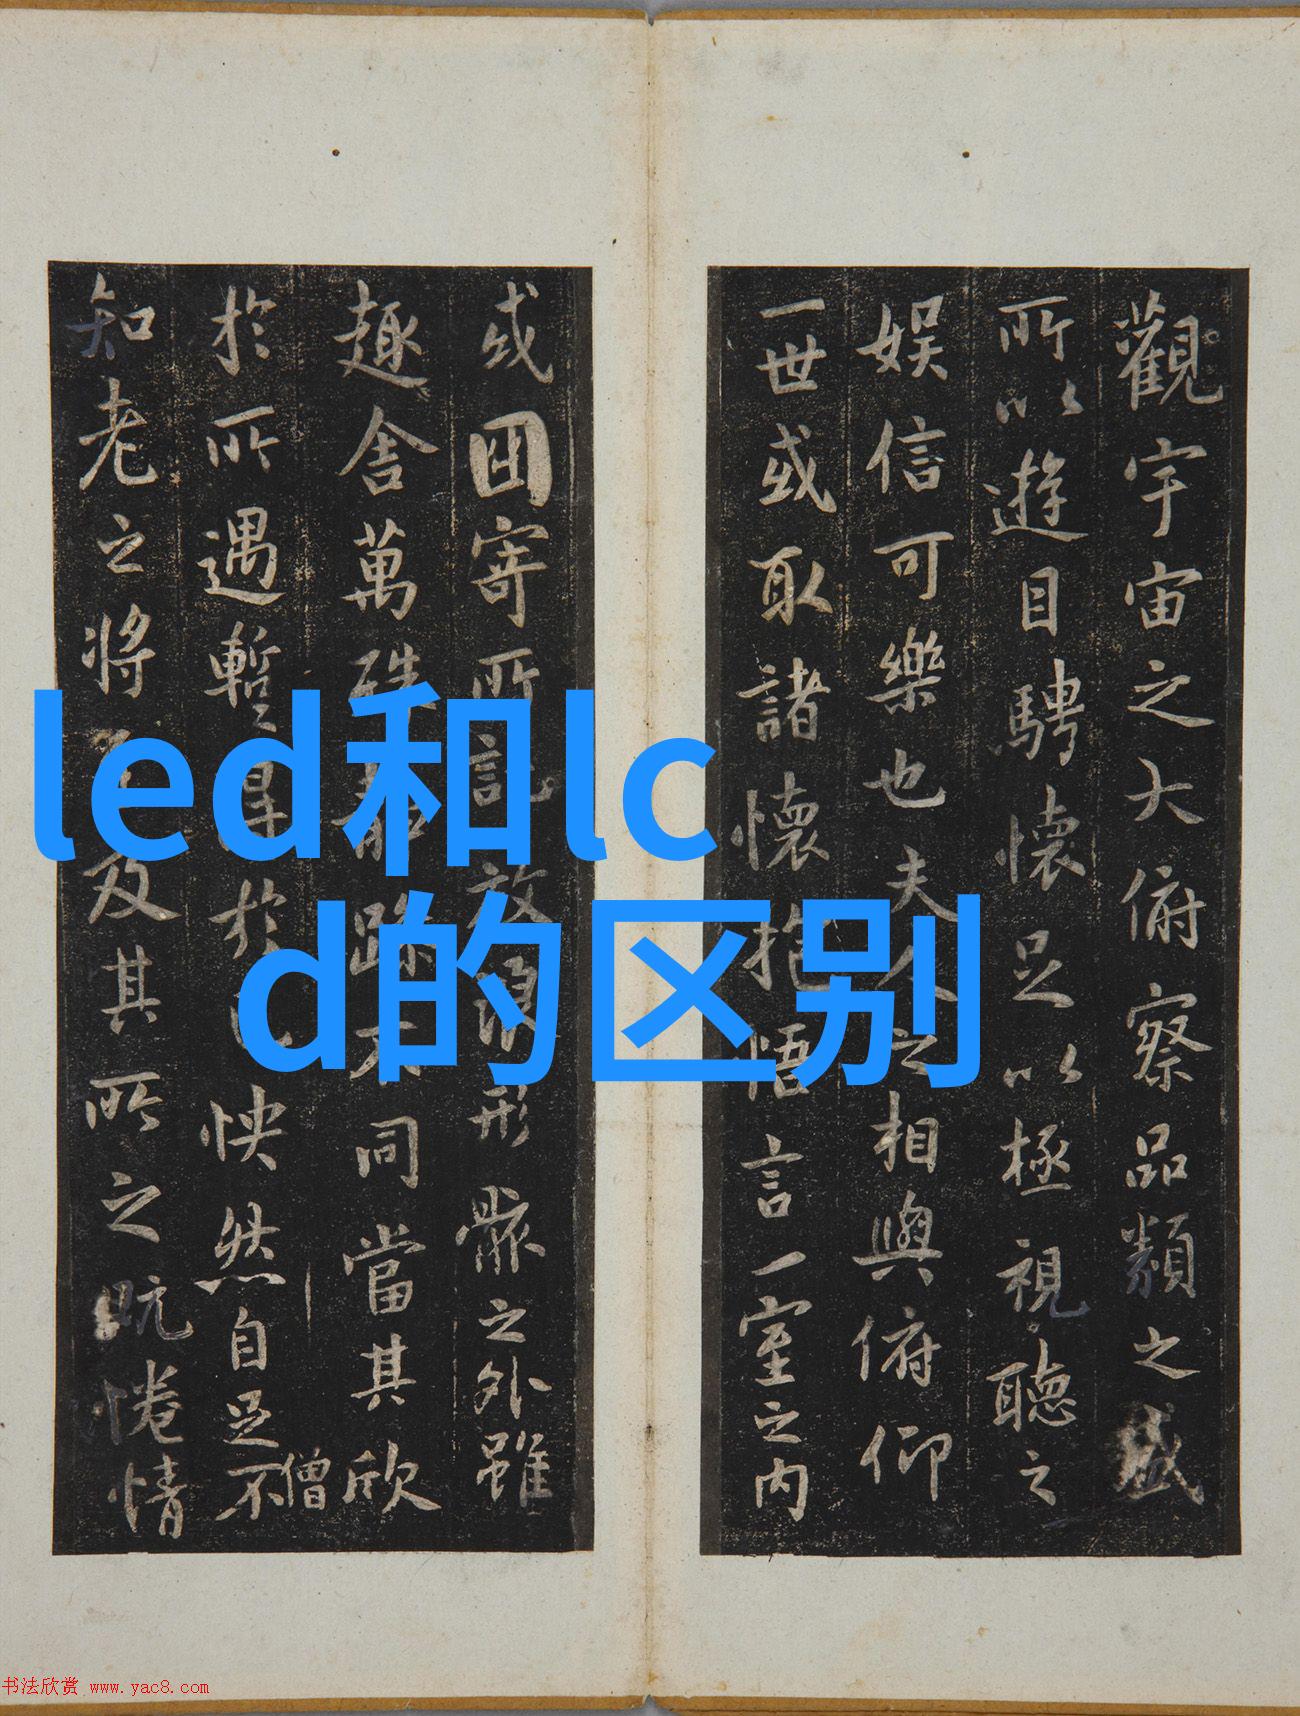 觀宇宙之大俯察品類之盛
所以遊目騁懷足以極視聽之
娱信可樂也夫人之相與俯仰
一世或取諸懷抱悟言一室之內
或因寄所託放浪形骸之外雖
趣舍萬殊静躁不同當其欣
於所遇暫得於己快然自足不
僧
知老之將至及其所之既惓情
led和lc
d的区别
书法欣赏 www.yac8.com